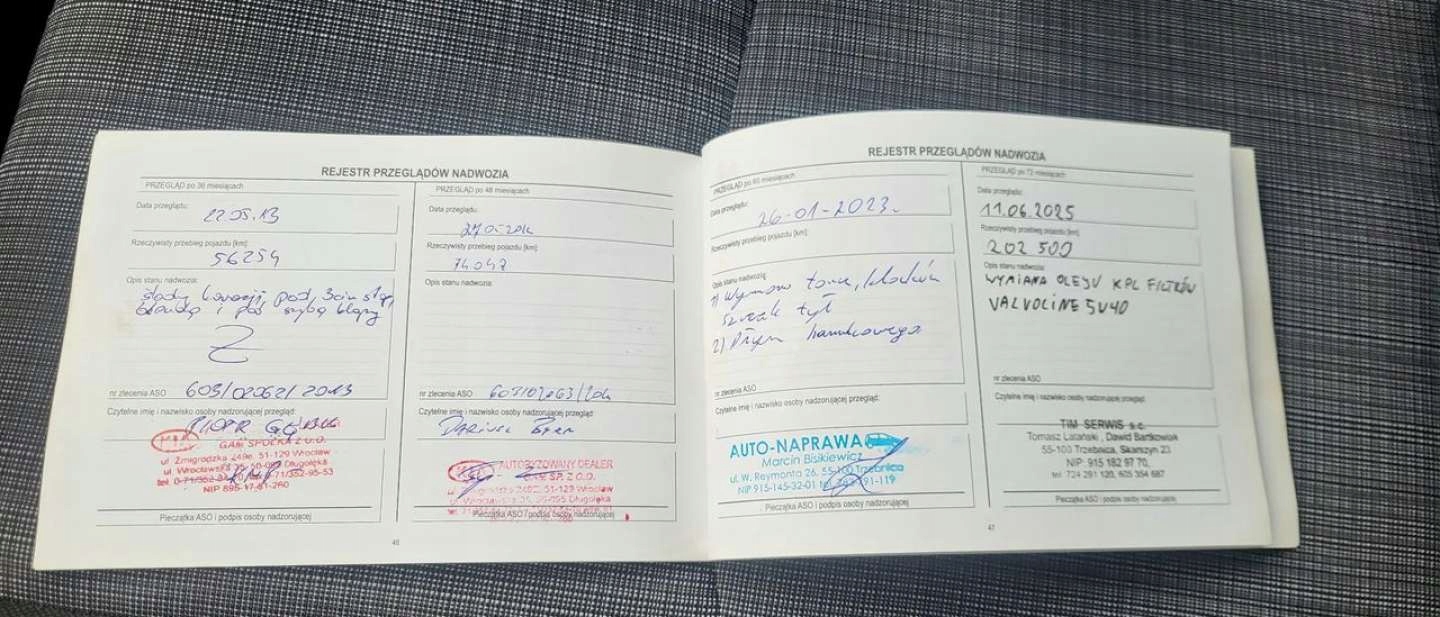 REJESTR PRZEGLĄDÓW NADWOZIA
PRZEGLĄD po 36 miesiącach
Data przeglądu:
22.05.13
Rzeczywisty przebieg pojazdu [km]:
56254
Opis stanu nadwozia:
nr zlecenia ASO 603/02062/2013
Czytelne imię i nazwisko osoby nadzorującej przegląd:
PIOTR
GAM SPÓŁKA Z O.O.
ul. Żmigrodzka 249e, 51-129 Wrocław
ul. Wrocławska Długołęka
Pieczątka ASO i podpis osoby nadzorującej
46
PRZEGLĄD po 48 miesiącach
Data przeglądu:
Rzeczywisty przebieg pojazdu [km]:
74047
Opis stanu nadwozia:
nr zlecenia ASO
Czytelne imię i nazwisko osoby nadzorującej przegląd:
DARIUSZ
AUTORYZOWANY DEALER
SP. Z O.O.
51-129 Wrocław
Długołęka
Pieczątka ASO i podpis osoby nadzorującej
REJESTR PRZEGLĄDÓW NADWOZIA
PRZEGLĄD po 60 miesiącach
Data przeglądu:
26-01-2023r.
Rzeczywisty przebieg pojazdu [km]:
Opis stanu nadwozia:
1) Wymiana tarcz, klocków
szczęk tył
2) Płyn hamulcowego
nr zlecenia ASO
Czytelne imię i nazwisko osoby nadzorującej przegląd:
AUTO-NAPRAWA
Marcin Bisikiewicz
ul. W. Reymonta 26, 55-100 Trzebnica
NIP 915-145-32-01
Pieczątka ASO i podpis osoby nadzorującej
PRZEGLĄD po 72 miesiącach
Data przeglądu:
11.06.2025
Rzeczywisty przebieg pojazdu [km]:
202 500
Opis stanu nadwozia:
WYMIANA OLEJU KPL FILTRÓW
VALVOLINE 5W40
nr zlecenia ASO
Czytelne imię i nazwisko osoby nadzorującej przegląd:
TIM SERWIS s.c.
Tomasz Latański, Dawid Bartkowiak
55-100 Trzebnica, Skarszyn 23
NIP: 915 182 97 70,
tel 724 291 120, 605 354 687
Pieczątka ASO i podpis osoby nadzorującej
47